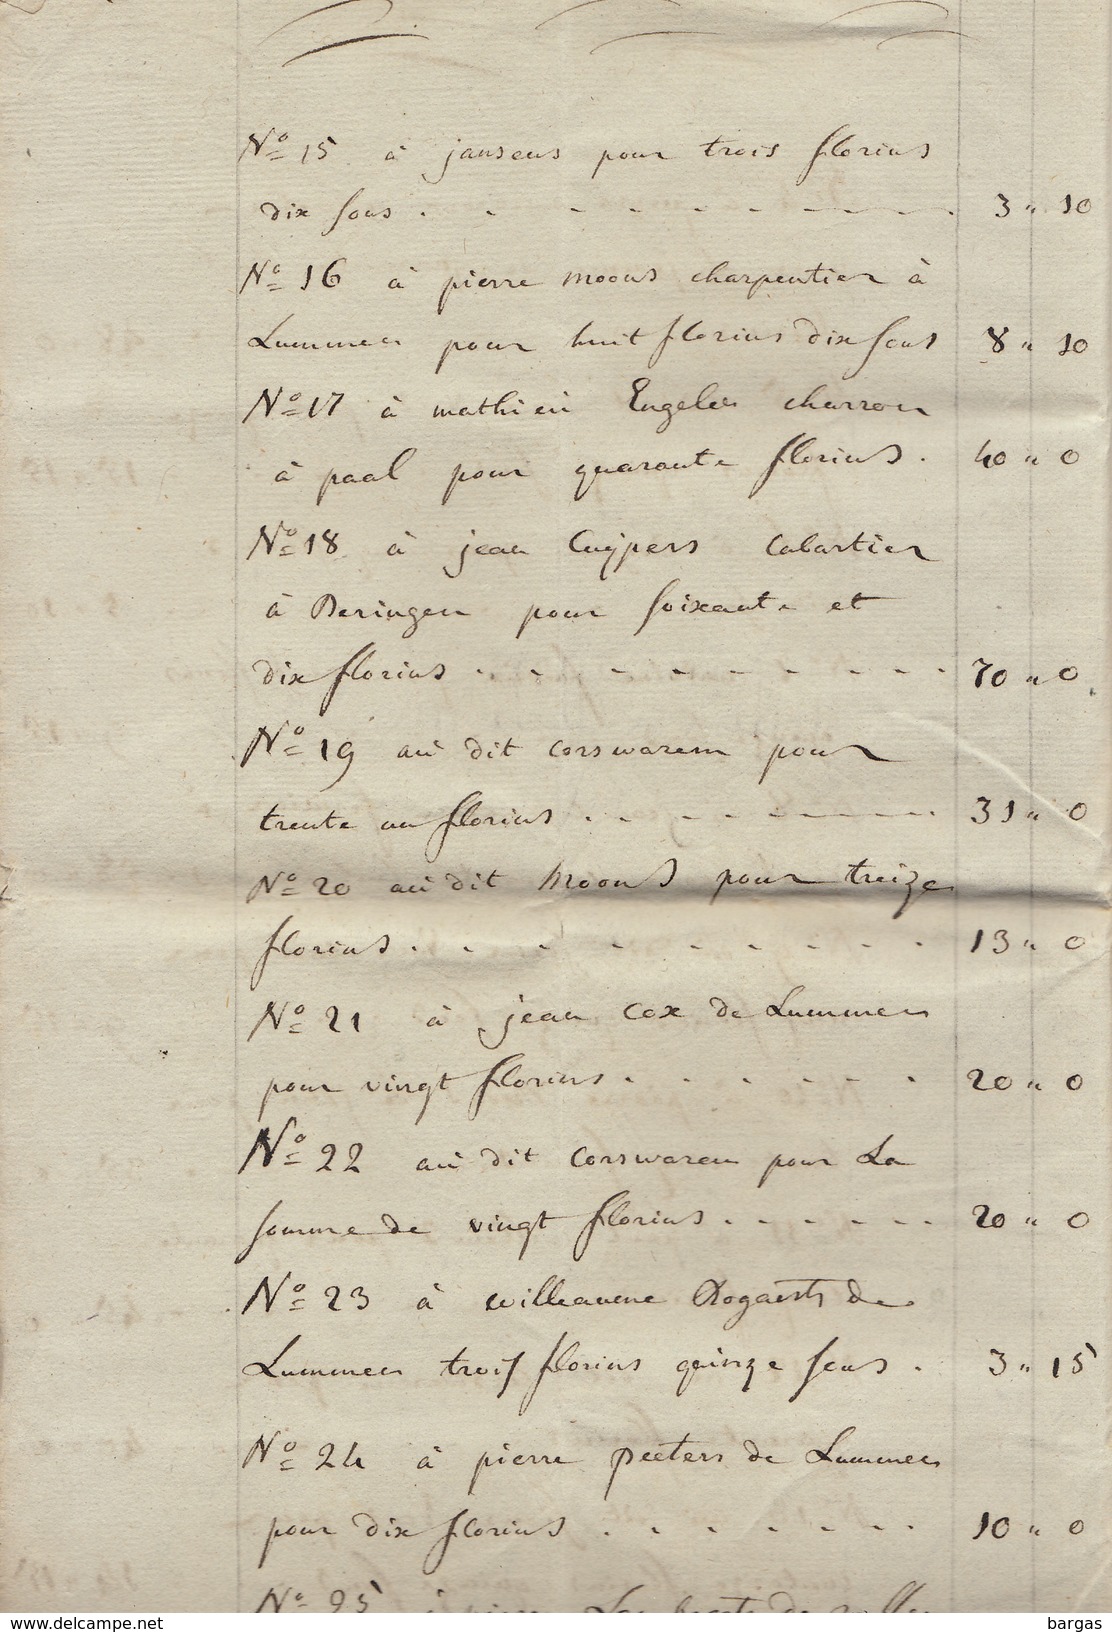 Nº 15 à jansens pour trois florins
dix sous . - - - - - - - - - 3 " 10
Nº 16 à pierre moons charpentier à
Lummen pour huit florins dix sous 8 " 10
Nº 17 à mathieu Engelen charron
à paal pour quarante florins . 40 " 0
Nº 18 à jean Cuÿpers Cabartier
à Beringen pour soixante et
dix florins - - - - - - - - - 70 " 0
Nº 19 au dit corswarem pour
trente un florins . - - - - - - 31 " 0
Nº 20 au dit moons pour treize
florins . - - - - - - - - 13 " 0
Nº 21 à jean cox de Lummen
pour vingt florins . . . . . . 20 " 0
Nº 22 au dit corswarem pour La
somme de vingt florins . - - - - - 20 " 0
Nº 23 à willeaume de
Lummen trois florins quinze sous . 3 " 15
Nº 24 à pierre peeters de Lummen
pour dix florins . - - - - - - 10 " 0
Nº 25 à
www.delcampe.net
bargas